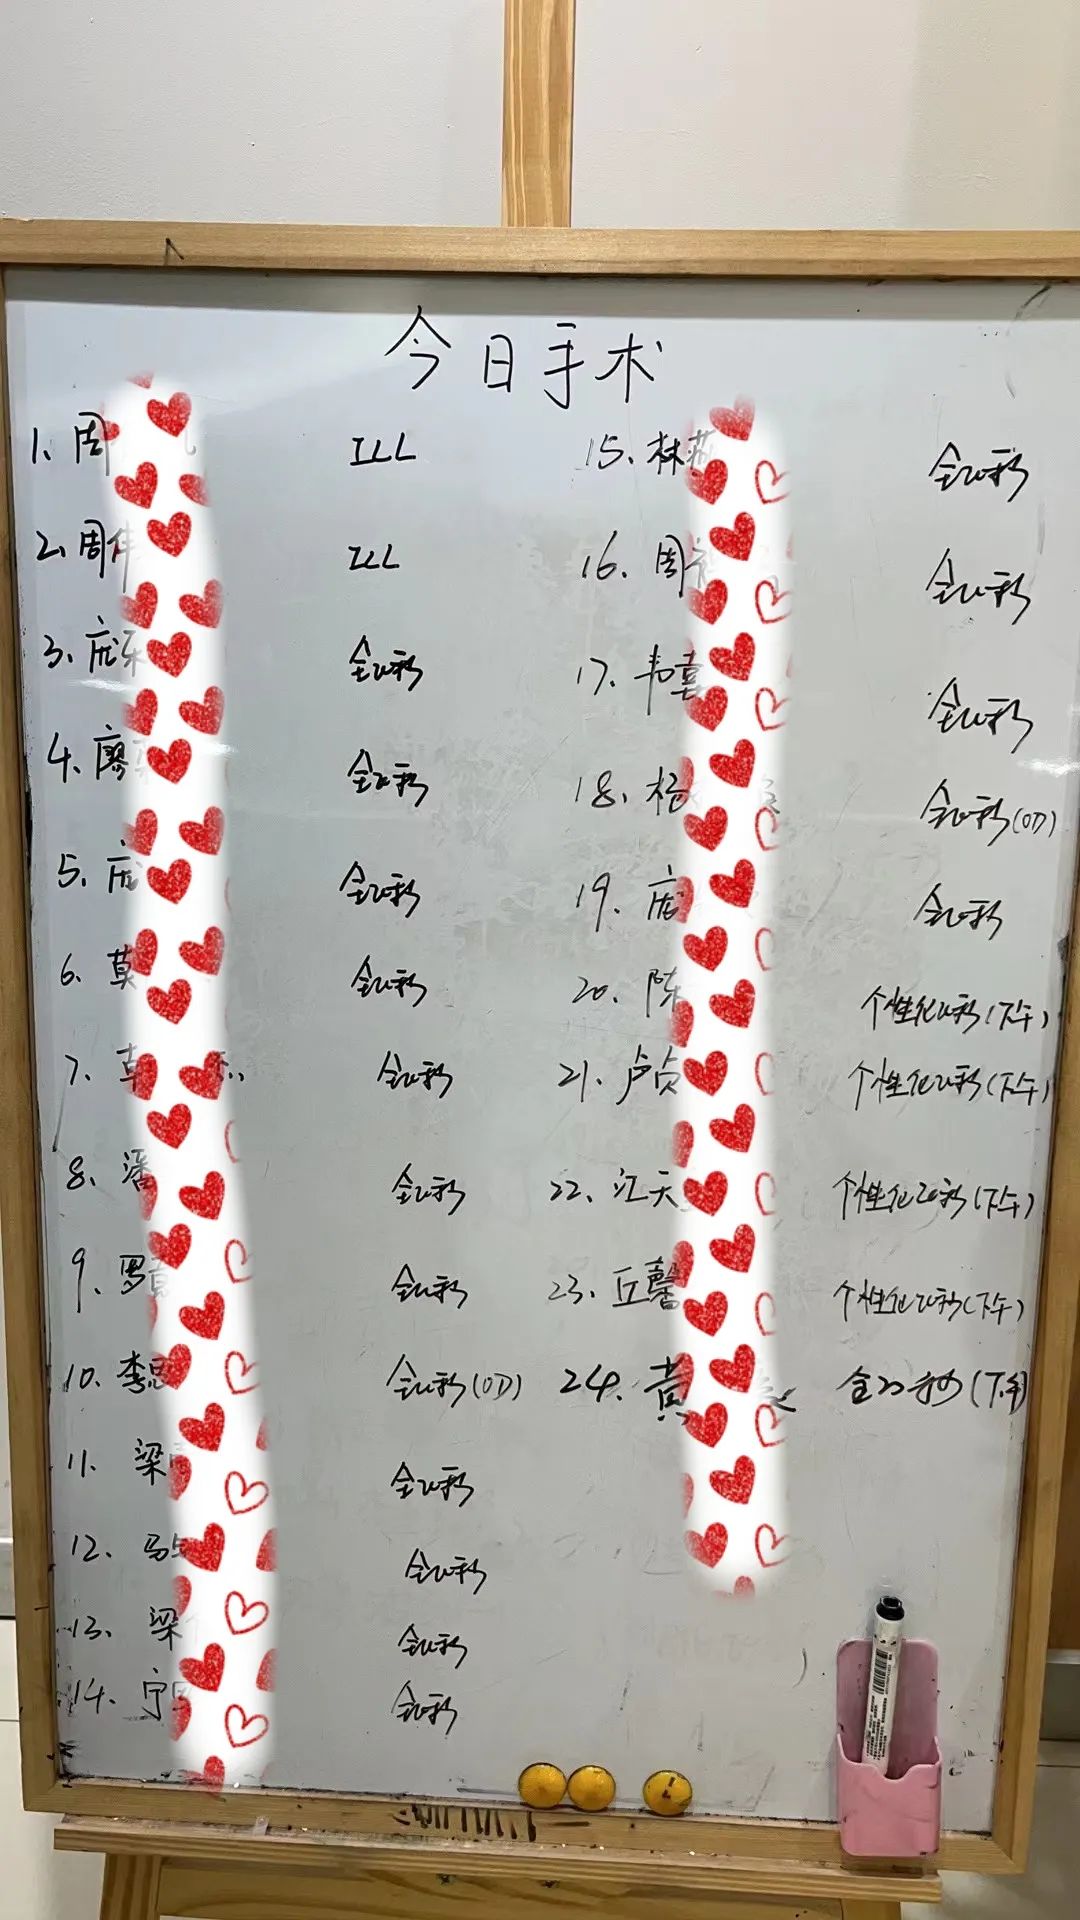 今日手术
1、周 ICL
2、周伟 ICL
3、庞乐 全飞秒
4、廖 全飞秒
5、庞 全飞秒
6、莫 全飞秒
7、 全飞秒
8、潘 全飞秒
9、罗 全飞秒
10、李思 全飞秒(OD)
11、梁 全飞秒
12、马 全飞秒
13、梁 全飞秒
14、宁 全飞秒
15、林 全飞秒
16、周 全飞秒
17、韦喜 全飞秒
18、杨 全飞秒(OD)
19、庞 全飞秒
20、陈 个性化飞秒(下午)
21、卢贞 个性化飞秒(下午)
22、江天 个性化飞秒(下午)
23、丘馨 个性化飞秒(下午)
24、黄 全飞秒(下午)